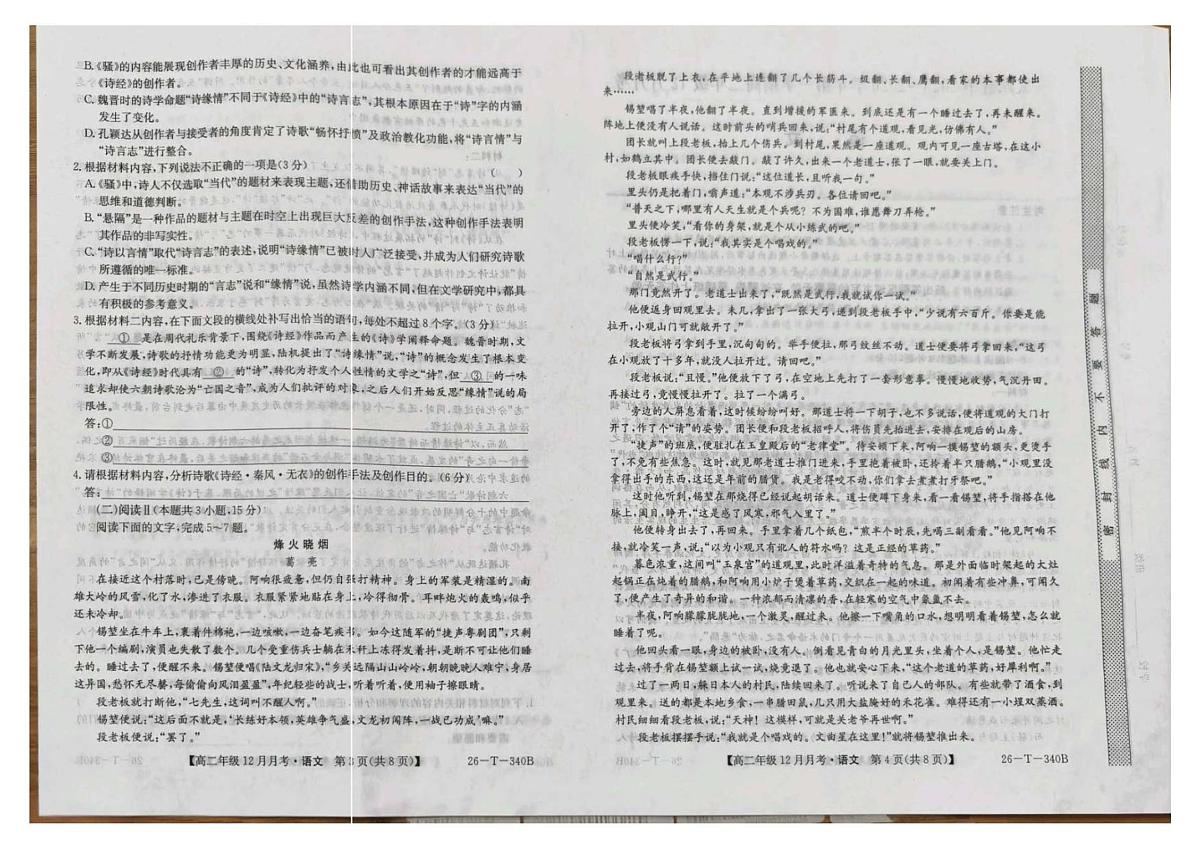 B.《骚》的内容能展现创作者丰厚的历史、文化涵养,由此也可看出其创作者的才能远高于
《诗经》的创作者。
C.魏晋时的诗学命题“诗缘情”不同于《诗经》中的“诗言志”,其根本原因在于“诗”字的内涵
发生了变化。
D.孔颖达从创作者与接受者的角度肯定了诗歌“畅怀抒愤”及政治教化功能,将“诗言情”与
“诗言志”进行整合。
2.根据材料内容,下列说法不正确的一项是(3分) ( )
A.《骚》中,诗人不仅选取“当代”的题材来表现主题,还借助历史、神话故事来表达“当代”的
思维和道德判断。
B.“悬隔”是一种作品的题材与主题在时空上出现巨大反差的创作手法,这种创作手法表明
其作品的非写实性。
C.“诗以言情”取代“诗言志”的表述,说明“诗缘情”已被时人广泛接受,并成为人们研究诗歌
所遵循的唯一标准。
D.产生于不同历史时期的“言志”说和“缘情”说,虽然诗学内涵不同,但在文学研究中,都具
有积极的参考意义。
3.根据材料二内容,在下面文段的横线处补写出恰当的语句,每处不超过8个字。(3分)
① 是在周代礼乐背景下,围绕《诗经》作品而产生的《诗》学阐释命题。魏晋时期,文
学不断发展,诗歌的抒情功能更为明显,陆机提出了“诗缘情”说,“诗”的概念发生了根本变
化,即从《诗经》时代具有 ② 的“诗”,转化为抒发个人性情的文学之“诗”,但 ③ 的一味
追求却使六朝诗歌沦为“亡国之音”,成为人们批评的对象,之后人们开始反思“缘情”说的局
限性。
答:①
②
③
4.请根据材料内容,分析诗歌《诗经·秦风·无衣》的创作手法及创作目的。(6分)
答:
(二)阅读Ⅱ(本题共3小题,15分)
阅读下面的文字,完成5~7题。
烽火晓烟
葛亮
在接近这个村落时,已是傍晚。阿响很疲惫,但仍自强打精神。身上的军装是精湿的。南
雄大岭的风雪,化了水,渗进了衣服。衣服紧紧地贴在身上,冷得彻骨。耳畔炮火的轰鸣,似乎
还未冷却。
锡堃坐在牛车上,裹着件棉袍,一边咳嗽,一边奋笔疾书。如今这随军的“捷声粤剧团”,只剩
下他一个编剧,演员也失散了数个。几个受重伤兵士躺在禾秆上冻得发着抖,是断不可让他们睡
去的。睡过去了,便醒不来。锡堃便唱《陆文龙归宋》,“乡关远隔山山岭岭,朝朝晚晚人难宁,身居
这异国,愁怀无尽萦,每偷偷向风泪盈盈”,年纪轻些的战士,听着听着,便用袖子擦眼睛。
段老板就打断他,“七先生,这词叫不醒人啊。”
锡堃便说:“这后面不就是,‘长练好本领,英雄争气盛,文龙初闯阵,一战已功成’嘛。”
段老板便说:“罢了。”
【高二年级12月月考·语文 第3页(共8页)】 26-T-340B
段老板脱了上衣,在平地上连翻了几个长筋斗。极翻、长翻、鹰翻,看家的本事都使出
来……
锡堃唱了半夜,他翻了半夜。直到增援的军医来。到底还是有一个睡过去了,再未醒来。
阵地上便没有人说话。这时前头的哨兵回来,说:“村尾有个道观,看见光,仿佛有人。”
团长就叫上段老板,抬上几个伤兵。到村尾,果然是一座道观。观内可见一座古塔,在这小
村,如鹤立其中。团长便去敲门。敲了许久,出来一个老道士,张了一眼,就要关上门。
段老板眼疾手快,挡住门说:“这位道长,且听我一句。”
里头仍是把着门,嗡声道:“本观不涉兵刃。各位请回吧。”
“普天之下,哪里有人天生就是个兵呢?不为国难,谁愿舞刀弄枪。”
里头便冷笑,“看你的身架,就是个从小练武的吧。”
段老板愣一下,说:“我其实是个唱戏的。”
“唱什么行?”
“自然是武行。”
那门竟然开了。老道士出来了,“既然是武行,我就试你一试。”
他便返身回观里去。未几,拿出了一张大弓,递到段老板手中,“少说有六百斤。你要是能
拉开,小观山门可就敞开了。”
段老板将弓拿到手里,沉甸甸的。举手便拉,那弓纹丝不动。道士便要将弓拿回来,“这弓
在小观放了十多年,就没人拉开过。请回吧。”
段老板说:“且慢。”他便放下了弓,在空地上先打了一套形意拳。慢慢地收势,气沉丹田。
再接过弓,竟慢慢拉开了。拉了一个满弓。
旁边的人屏息看着,这时候纷纷叫好。那道士捋一下胡子,也不多说话,便将道观的大门打
开了,作了个“请”的姿势。团长便和段老板招呼人,将伤员先抬进去,安排在观后的山房。
“捷声”的班底,便驻扎在玉皇殿后的“老律堂”。待安顿下来,阿响一摸锡堃的额头,更烫手
了,不免有些焦急。这时,就见那老道士推门进来,手里抱着被卧,还拎着半只腊鹅,“小观里没
拿得出手的东西,这还是年前的腊货。我是老得咬不动,你们拿去煮煮打牙祭吧。”
这时他听到,锡堃在那烧得已经说起胡话来。道士便蹲下身来,看一看锡堃,将手指搭在他
脉上,闺目,睁开,“这是感了风寒,邪气入里了。”
他便转身出去了,再回来。手里拿着几个纸包,“煎半个时辰,先喝三剔看看。”他见阿响不
接,就冷笑一声,说:“以为小观只有讹人的符水吗?这是正经的草药。”
暮色浓重,这间叫“玉泉宫”的道观里,此时洋溢着奇特的气息。那是外面临时架起的大灶
起锅正在炖着的腊鹅,和阿响用小炉子煲着草药,交织在一起的味道。初闻着有些冲鼻,可闻久
了,便产生了奇异的和谐。一种浓郁而清凛的香,在轻寒的空气中氤氲不去。
半夜,阿响朦朦胧胧地,一个激灵,醒过来。他擦一下嘴角的口水,想明明看着锡堃,怎么就
睡着了呢。
他回头看一眼,身边的被卧,没有人。倒看见青白的月光里头,坐着个人,是锡堃。他忙走
过去,将手背在锡堃额上试一试,烧竟退了。他也就安心下来,“这个老道的草药,好犀利啊。”
过了一两日,躲日本人的村民,陆续回来了。听说来了自己人的部队。有些就带了酒食,到
观里来。送的都是本地乡食,一串腊田鼠,几只用大盐腌好的禾花雀。难得还有一小埕双蒸酒。
村民细细看段老板,说:“天神!这模样,可就是关老爷再世啊。”
段老板摆摆手说:“我就是个唱戏的。文曲星在这里!”就将锡堃推出来。
【高二年级12月月考·语文 第4页(共8页)】 26-T-340B
密 封 线 内 不 要 答 题